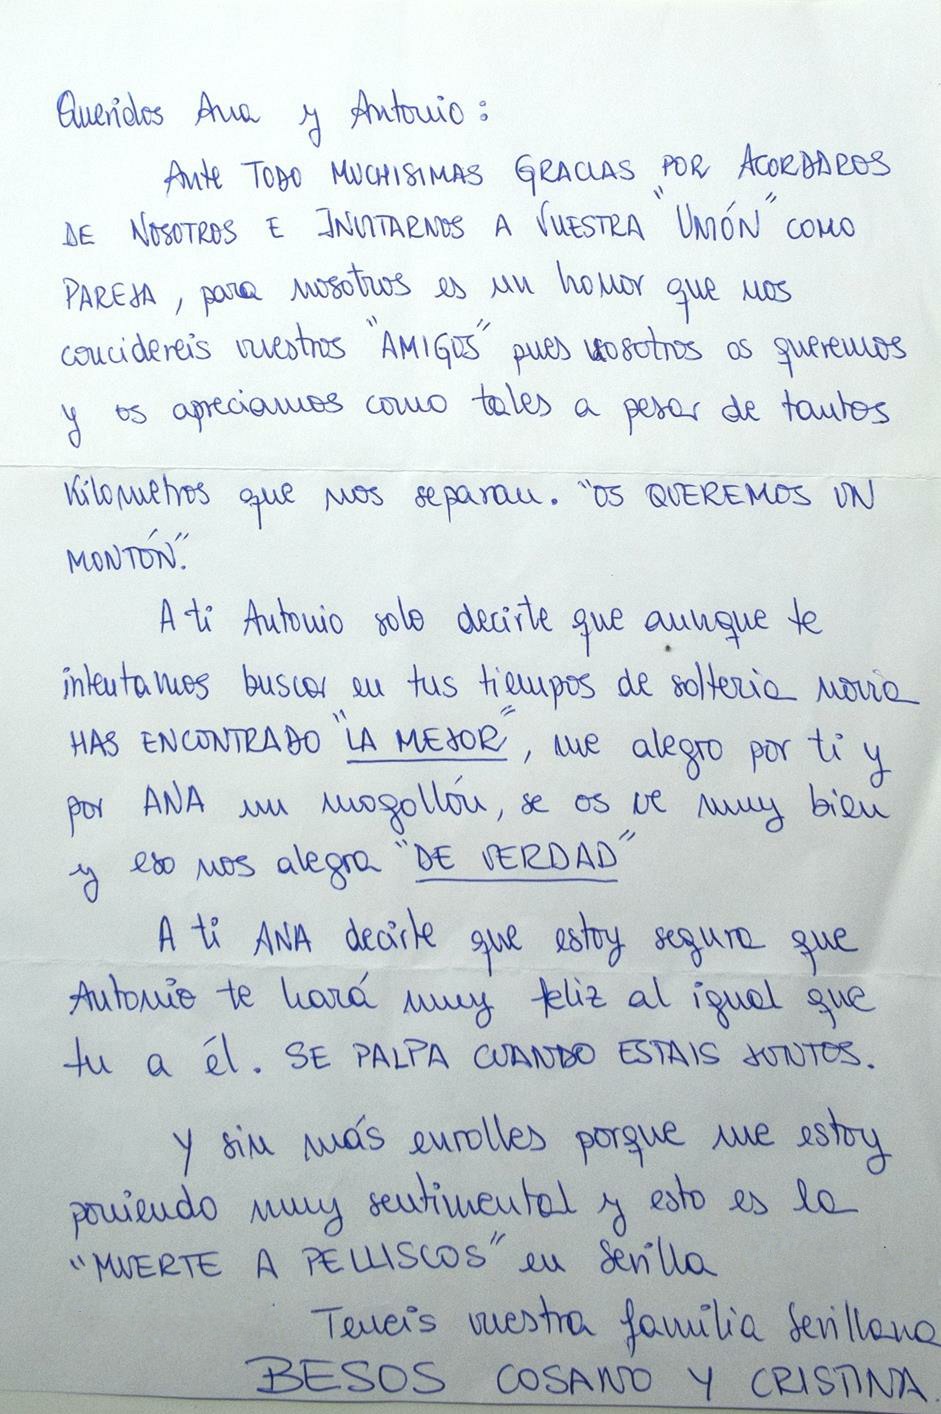 Queridos Ana y Antonio:
Ante TODO MUCHISIMAS GRACIAS POR ACORDAROS
DE NOSOTROS E INVITARNOS A VUESTRA "UNIÓN" COMO
PAREJA, para nosotros es un honor que nos
concidereis vuestros "AMIGOS" pues nosotros os queremos
y os apreciamos como tales a pesar de tantos
Kilometros que nos separan. "OS QUEREMOS UN
MONTÓN".
A ti Antonio solo decirte que aunque te
intentamos buscar en tus tiempos de solteria novia
HAS ENCONTRADO "LA MEJOR", me alegro por ti y
por ANA un mogollón, se os ve muy bien
y eso nos alegra "DE VERDAD"
A ti ANA decirte que estoy segura que
Antonio te hará muy feliz al igual que
tu a él. SE PALPA CUANDO ESTAIS JUNTOS.
Y sin más enrolles porque me estoy
poniendo muy sentimental y esto es la
"MUERTE A PELLISCOS" en Sevilla
Teneis vuestra familia Sevillana
BESOS COSANO Y CRISTINA.